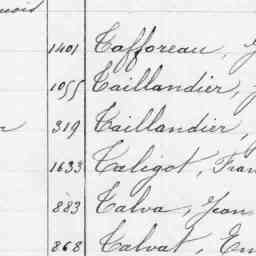 1401 Tafforeau,
1055 Taillandier,
319 Taillandier,
1633 Taligot, Fran
883 Talva, Jean
868 Talvat, Em